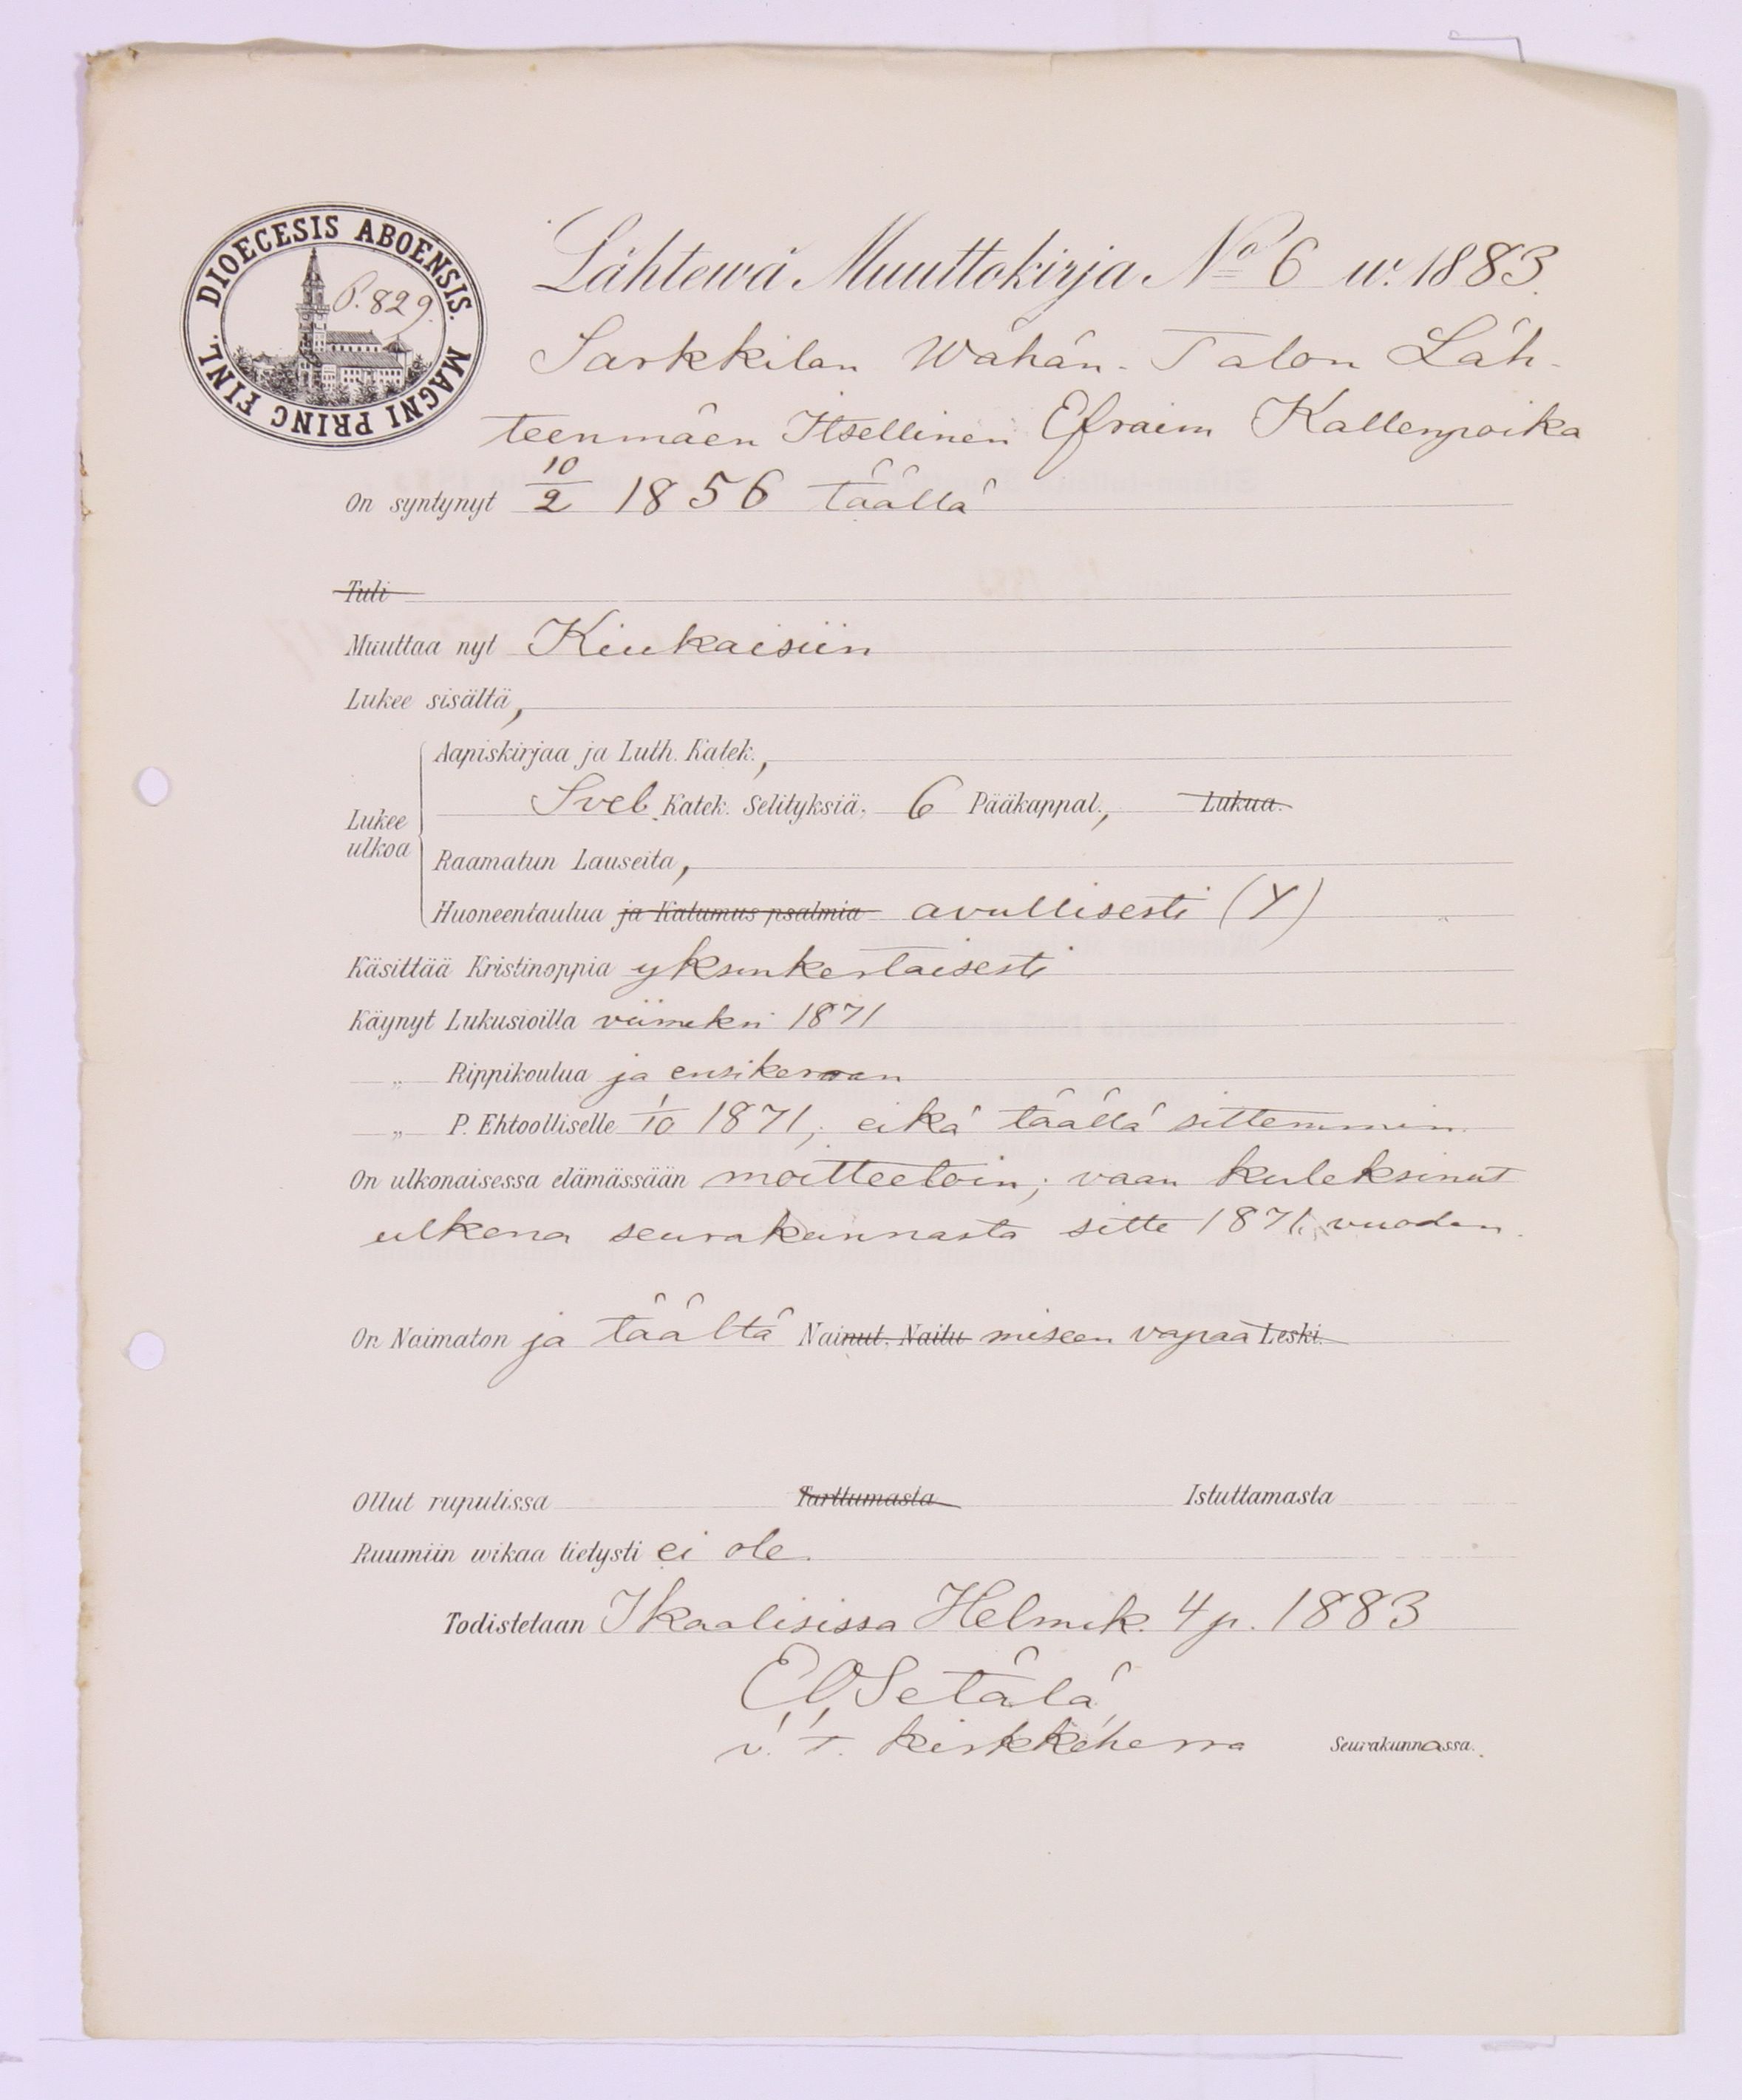 DIOECESIS ABOENSIS. MAGNI PRINC FINL.
P. 829.
Lähtewä Muuttokirja No 6 w. 1883.
Sarkkilan Wähän-Talon Läh-
teenmäen Itsellinen Efraim Kallenpoika
On syntynyt 10/2 1856 täällä
Tuli
Muuttaa nyt Kiukaisiin
Lukee sisältä,
Aapiskirjaa ja Luth. Katek.,
Sveb. Katek. Selityksiä, 6 Pääkappal., Lukua.
Lukee ulkoa
Raamatun Lauseita,
Huoneentaulua ja Katumus psalmia avullisesti (Y)
Käsittää Kristinoppia yksinkertaisesti
Käynyt Lukusioilla viimeksi 1871
„ Rippikoulua ja ensikerran
„ P. Ehtoolliselle 1/10 1871, eikä täällä sittemmin.
On ulkonaisessa elämässään moitteetoin; vaan kuleksinut
ulkona seurakunnasta sitte 1871 vuoden.
On Naimaton ja täältä Nainut, Naitu miseen vapaa Leski.
Ollut rupulissa Tarttumasta Istuttamasta
Ruumiin wikaa tietysti ei ole.
Todistetaan Ikaalisissa Helmik. 4 p. 1883
E. O. Setälä
v. t. kirkkoherra Seurakunnassa.